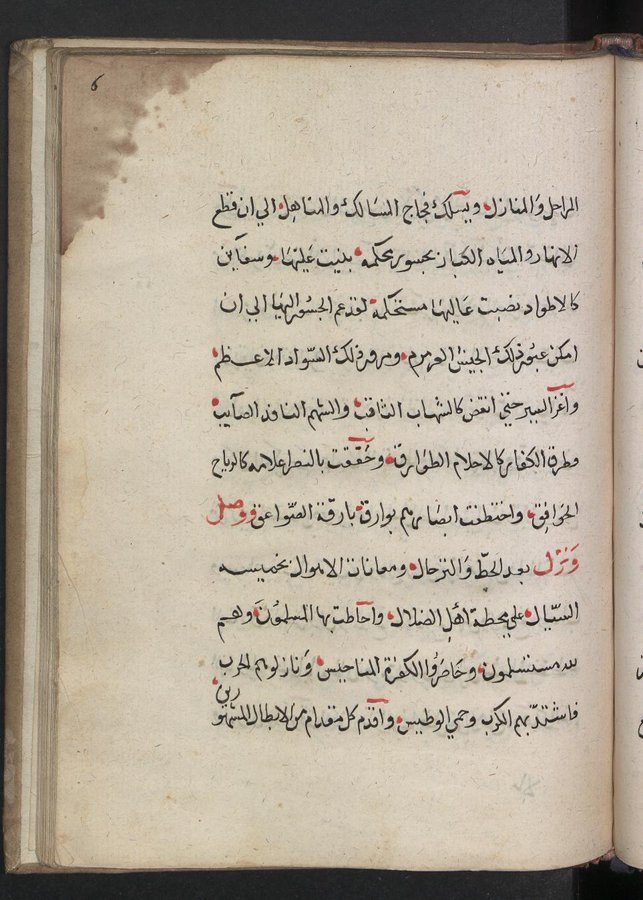 6
المراحل والمنازل ويسلك فجاج المسالك والمناهل الي ان قطع
الانهار والمياه الكبار بجسور محكمه بنيت عليها وسفاين
كالاطواد نصبت عاليها مستحكمة لقدعم الجسور اليها الي ان
امكن عبور ذلك الجيش العرمرم ومرور ذلك السواد الاعظم
واغز السير حتي انقض كالشهاب الثاقب والسهم النافد الصايب
وطرق الكفار كالاحلام الطوارق وخفقت بالنصر اعلامه كالرياح
الخوافق واختطفت ابصارهم بوارق بارقة الصواعق ووصل
ونزل بعد الحط والترحال ومعانات الاهوال بخميسه
السيال علي محطة اهل الضلال واحاطت بها المسلمون وهم
لله مستسلمون وحاصروا الكفرة المناحيس ونازلوهم الحرب
فاشتد بهم الكرب وحمي الوطيس واقدم كل مقدام من الابطال المشهورين